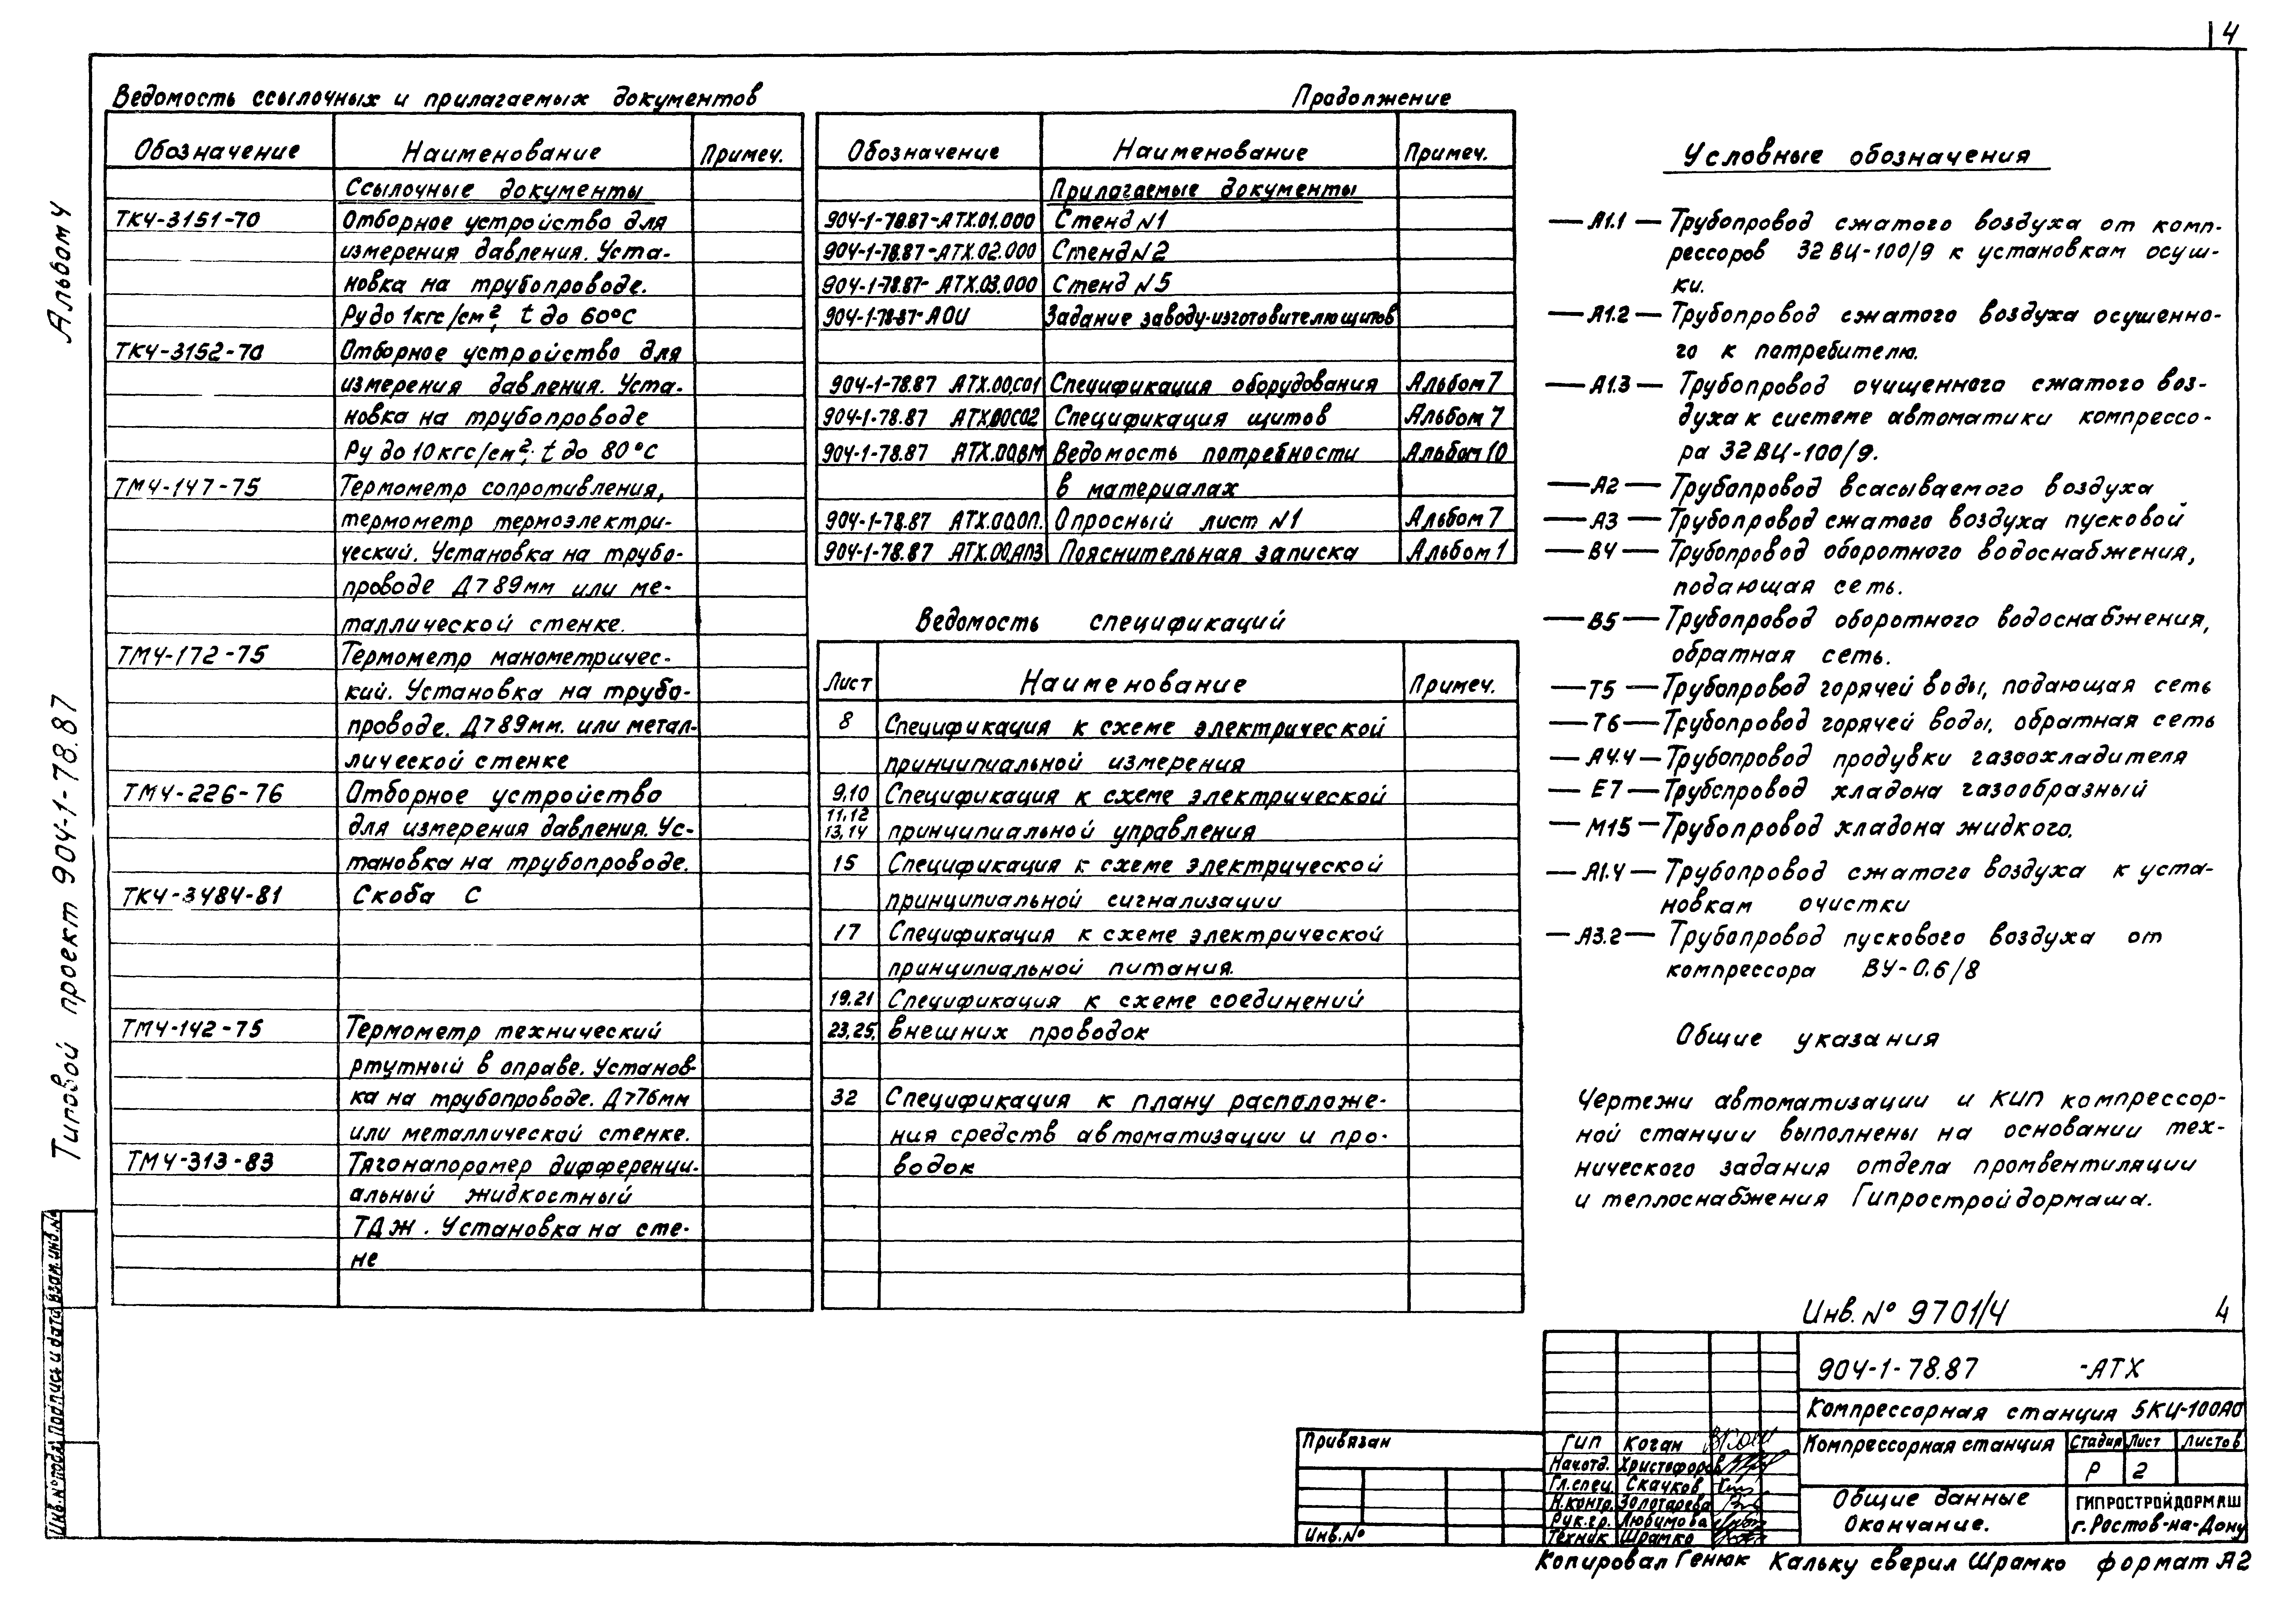 4
Альбом 4
Типовой проект 904-1-78.87
Ведомость ссылочных и прилагаемых документов
Обозначение Наименование Примеч.
Ссылочные документы
ТК4-3151-70 Отборное устройство для
измерения давления. Уста-
новка на трубопроводе.
Ру до 1кгс/см², t до 60°С
ТК4-3152-70 Отборное устройство для
измерения давления. Уста-
новка на трубопроводе
Ру до 10кгс/см²; t до 80°С
ТМ4-147-75 Термометр сопротивления,
термометр термоэлектри-
ческий. Установка на трубо-
проводе Д>89мм или ме-
таллической стенке.
ТМ4-172-75 Термометр манометричес-
кий. Установка на трубо-
проводе. Д>89мм. или метал-
лической стенке
ТМ4-226-76 Отборное устройство
для измерения давления. Ус-
тановка на трубопроводе.
ТК4-3484-81 Скоба С
ТМ4-142-75 Термометр технический
ртутный в оправе. Установ-
ка на трубопроводе. Д>76мм
или металлической стенке.
ТМ4-313-83 Тягонапоромер дифференци-
альный жидкостный
ТДЖ. Установка на сте-
не
Продолжение
Обозначение Наименование Примеч.
Прилагаемые документы
904-1-78.87-АТХ.01.000 Стенд N1
904-1-78.87-АТХ.02.000 Стенд N2
904-1-78.87-АТХ.03.000 Стенд N5
904-1-78-87-АОИ Задание заводу-изготовителю щитов
904-1-78.87 АТХ.00.С01 Спецификация оборудования Альбом 7
904-1-78.87 АТХ.00С02 Спецификация щитов Альбом 7
904-1-78.87 АТХ.00.ВМ Ведомость потребности Альбом 10
в материалах
904-1-78.87 АТХ.00.ОП. Опросный лист N1 Альбом 7
904-1-78.87 АТХ.00.АПЗ Пояснительная записка Альбом 1
Ведомость спецификаций
Лист Наименование Примеч.
8 Спецификация к схеме электрической
принципиальной измерения
9,10 Спецификация к схеме электрической
11,12
13,14 принципиальной управления
15 Спецификация к схеме электрической
принципиальной сигнализации
17 Спецификация к схеме электрической
принципиальной питания.
19.21 Спецификация к схеме соединений
23,25, внешних проводок
32 Спецификация к плану расположе-
ния средств автоматизации и про-
водок
Условные обозначения
— А1.1 — Трубопровод сжатого воздуха от комп-
рессоров 32 ВЦ-100/9 к установкам осуш-
ки.
— А1.2 — Трубопровод сжатого воздуха осушенно-
го к потребителю.
— А1.3 — Трубопровод очищенного сжатого воз-
духа к системе автоматики компрессо-
ра 32ВЦ-100/9.
— А2 — Трубопровод всасываемого воздуха
— А3 — Трубопровод сжатого воздуха пусковой
— В4 — Трубопровод оборотного водоснабжения,
подающая сеть.
— В5 — Трубопровод оборотного водоснабжения,
обратная сеть.
— Т5 — Трубопровод горячей воды, подающая сеть
— Т6 — Трубопровод горячей воды, обратная сеть
— А4.4 — Трубопровод продувки газоохладителя
— Е7 — Трубопровод хладона газообразный
— М15 — Трубопровод хладона жидкого.
— А1.4 — Трубопровод сжатого воздуха к уста-
новкам очистки
— А3.2 — Трубопровод пускового воздуха от
компрессора ВУ-0.6/8
Общие указания
Чертежи автоматизации и КИП компрессор-
ной станции выполнены на основании тех-
нического задания отдела промвентиляции
и теплоснабжения Гипростройдормаша.
Инв. N° 9701/4 4
904-1-78.87 -АТХ
Компрессорная станция 5КЦ-100А0
Компрессорная станция Стадия Лист Листов
Р 2
Общие данные
Окончание.
ГИПРОСТРОЙДОРМАШ
г. Ростов-на-Дону
Гип Коган
Нач.отд. Христофоров
Гл.спец. Скачков
Н.контр. Золотарева
Рук.гр. Любимова
Техник Шрамко
Привязан
Инв. N°
Инв. N° подл. Подпись и дата Взам. инв. N°
Копировал Генюк Кальку сверил Шрамко формат А2